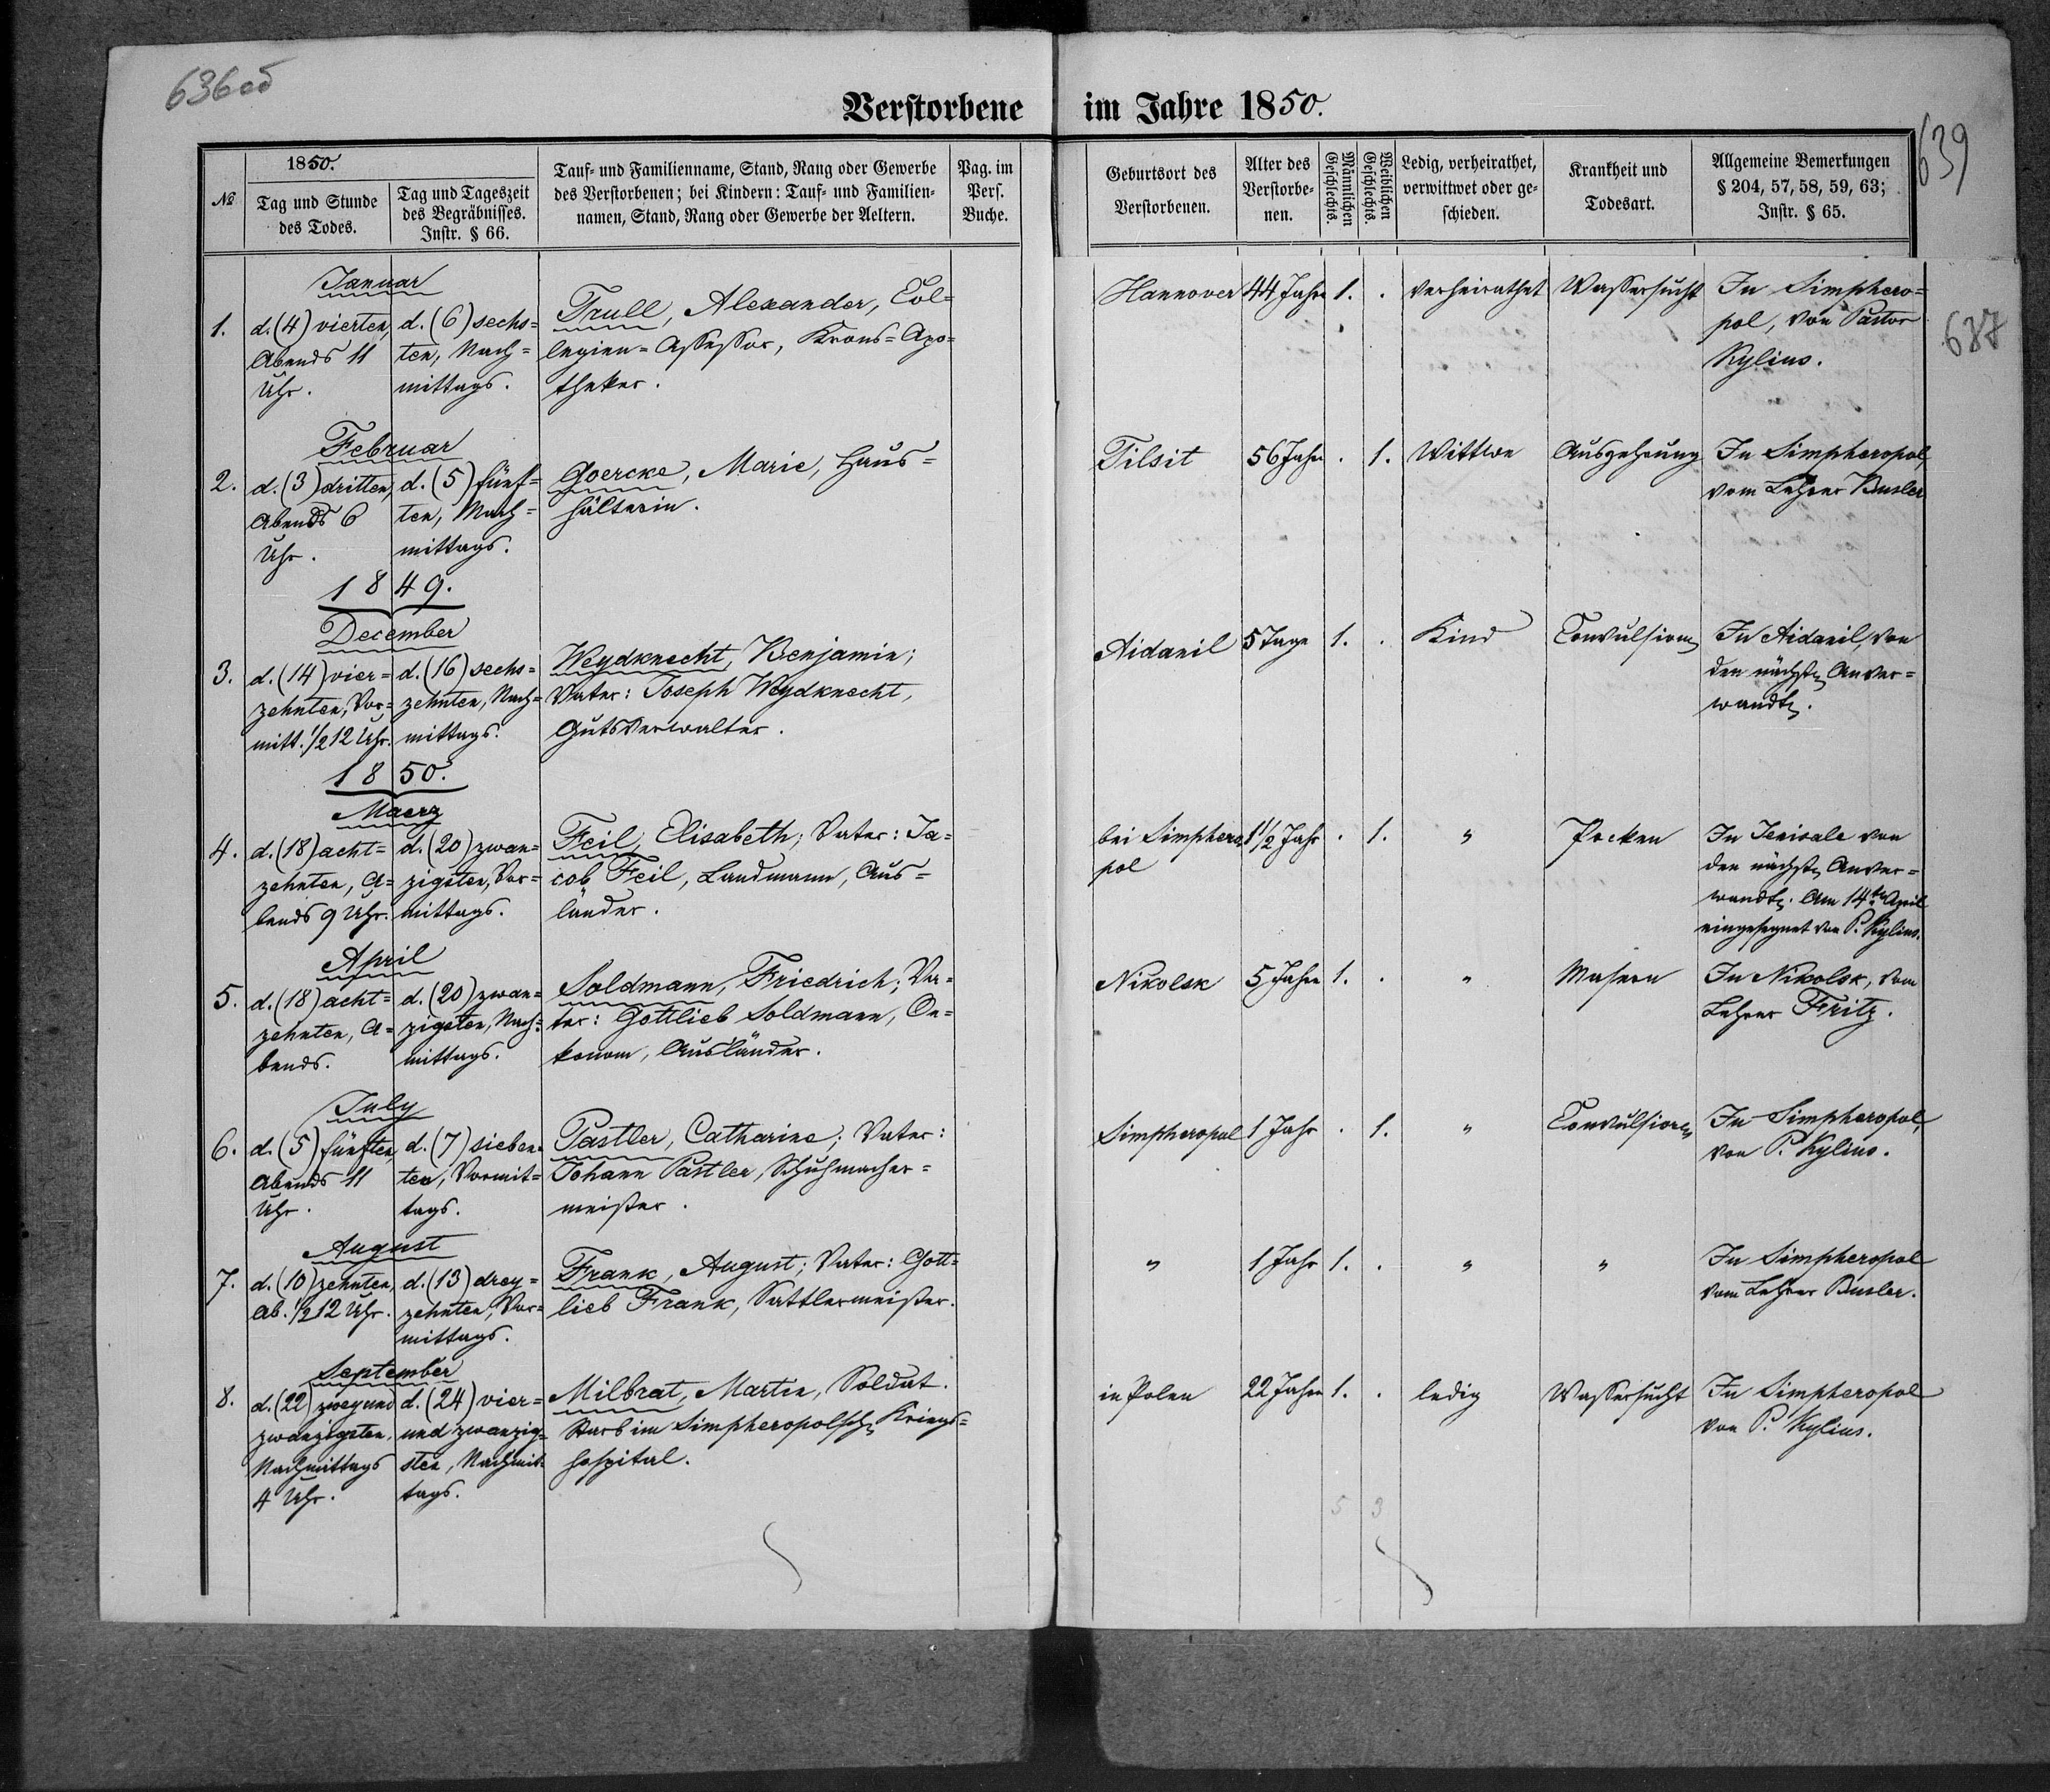 636 об
Verstorbene im Jahre 1850.
639
637
№
1850.
Tag und Stunde
des Todes.
Tag und Tageszeit
des Begräbnisses.
Instr. § 66.
Tauf- und Familienname, Stand, Rang oder Gewerbe
des Verstorbenen; bei Kindern: Tauf- und Familien-
namen, Stand, Rang oder Gewerbe der Aeltern.
Pag. im
Pers.
Buche.
Geburtsort des
Verstorbenen.
Alter des
Verstorbe-
nen.
Männlichen
Geschlechts.
Weiblichen
Geschlechts.
Ledig, verheirathet,
verwittwet oder ge-
schieden.
Krankheit und
Todesart.
Allgemeine Bemerkungen
§ 204, 57, 58, 59, 63;
Instr. § 65.
Januar
1.
d. (4) vierten,
Abends 11
Uhr.
d. (6) sechs=
ten, Nach=
mittags.
Trull, Alexander, Col=
legien=Assessor, Krons=Apo=
theker.
Hannover
44 Jahre
1.
.
verheirathet
Wassersucht
In Simphero=
pol, von Pastor
Kylius.
Februar
2.
d. (3) dritten,
Abends 6
Uhr.
d. (5) fünf=
ten, Nach=
mittags.
Goercke, Marie, Haus=
hälterin.
Tilsit
56 Jahre
.
1.
Wittwe
Auszehrung
In Simpheropol,
vom Lehrer Busler
1849.
December
3.
d. (14) vier=
zehnten, Vor=
mitt. 1/2 12 Uhr.
d. (16) sechs=
zehnten, Nach=
mittags.
Weydknecht, Benjamin;
Vater: Joseph Weydknecht,
Gutsverwalter.
Aidanil
5 Tage
1.
.
Kind
Convulsionen
In Aidanil, von
den nächsten Anver=
wandten.
1850.
Maerz
4.
d. (18) acht=
zehnten, A=
bends 9 Uhr.
d. (20) zwan=
zigsten, Vor=
mittags.
Feil, Elisabeth; Vater: Ja=
cob Feil, Landmann, Aus=
länder.
bei Simphero,
pol
1 1/2 Jahr
.
1.
"
Pocken
In Jenisale von
den nächsten Anver=
wandten. Am 14ten April
eingesegnet von P. Kylius.
April
5.
d. (18) acht=
zehnten, A=
bends.
d. (20) zwan=
zigsten, Nach=
mittags.
Soldmann, Friedrich; Va=
ter: Gottlieb Soldmann, Oe=
konom, Ausländer.
Nikolsk
5 Jahre
1.
.
"
Masern
In Nikolsk, vom
Lehrer Fritz.
July
6.
d. (5) fünften,
Abends 11
Uhr.
d. (7) sieben=
ten, Vormit=
tags.
Pastler, Catharine; Vater:
Johann Pastler, Schuhmacher=
meister.
Simpheropol
1 Jahr
.
1.
"
Convulsionen
In Simpheropol,
von P. Kylius.
August
7.
d. (10) zehnten,
Ab. 1/2 12 Uhr.
d. (13) drey=
zehnten, Vor=
mittags.
Frank, August; Vater: Gott=
lieb Frank, Sattlermeister.
"
1 Jahr
1.
.
"
"
In Simpheropol
vom Lehrer Busler.
September
8.
d. (22) zwey und
zwanzigsten,
Nachmittags
4 Uhr.
d. (24) vier=
und zwanzig=
sten, Nachmit=
tags.
Milbrat, Martin, Soldat.
Starb im Simpheropolschen Kriegs=
hospital.
in Polen
22 Jahre
1.
.
ledig
Wassersucht
In Simpheropol
von P. Kylius.
5
3